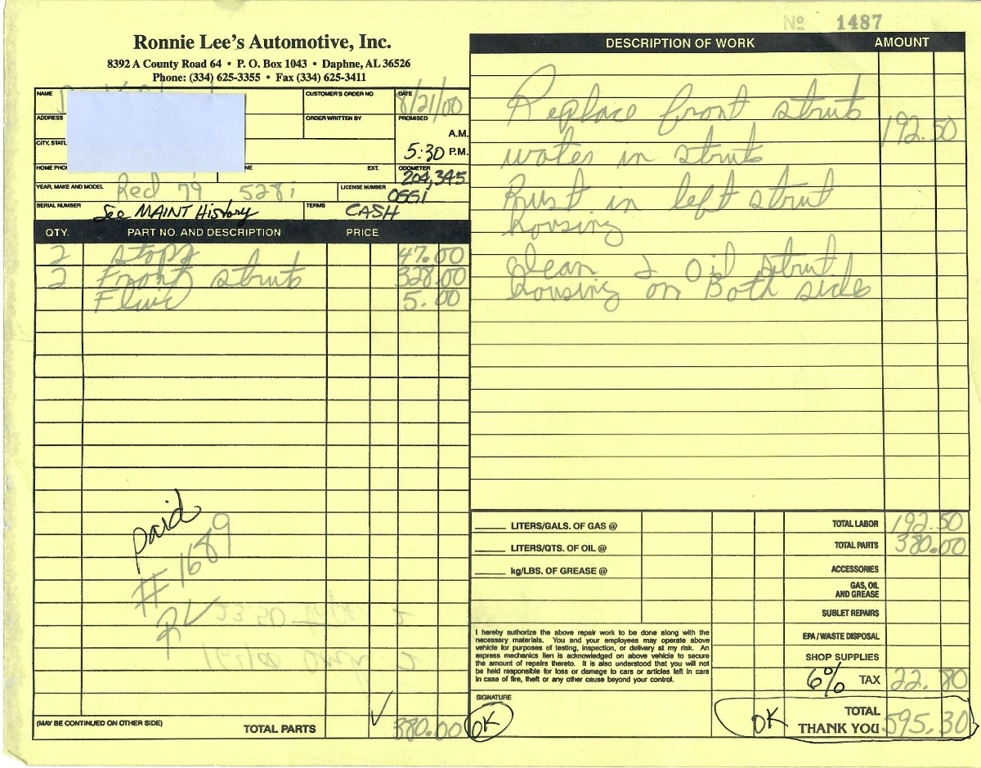 Nº 1487
Ronnie Lee's Automotive, Inc.
8392 A County Road 64 • P. O. Box 1043 • Daphne, AL 36526
Phone: (334) 625-3355 • Fax (334) 625-3411
NAME
CUSTOMER'S ORDER NO.
DATE
8/21/00
ADDRESS
ORDER WRITTEN BY
PROMISED
A.M.
CITY, STAT
5:30 P.M.
HOME PHO
NE
EXT.
ODOMETER
204,345
YEAR, MAKE AND MODEL
Red 79 528i
LICENSE NUMBER
0551
SERIAL NUMBER
See MAINT History
TERMS
CASH
QTY. PART NO. AND DESCRIPTION PRICE
2 stops 47.00
2 Front struts 328.00
Fluid 5.00
paid
# 1689
RL
(MAY BE CONTINUED ON OTHER SIDE)
TOTAL PARTS ✓ 380.00
DESCRIPTION OF WORK AMOUNT
Replace front struts
192.50
water in struts
Rust in left strut
housing
Clean & Oil strut
housing on Both sides
LITERS/GALS. OF GAS @
LITERS/QTS. OF OIL @
kg/LBS. OF GREASE @
TOTAL LABOR 192.50
TOTAL PARTS 380.00
ACCESSORIES
GAS, OIL
AND GREASE
SUBLET REPAIRS
EPA/WASTE DISPOSAL
SHOP SUPPLIES
6% TAX 22.80
I hereby authorize the above repair work to be done along with the
necessary materials. You and your employees may operate above
vehicle for purposes of testing, inspection, or delivery at my risk. An
express mechanics lien is acknowledged on above vehicle to secure
the amount of repairs thereto. It is also understood that you will not
be held responsible for loss or damage to cars or articles left in cars
in case of fire, theft or any other cause beyond your control.
SIGNATURE
OK
OK TOTAL
THANK YOU 595.30